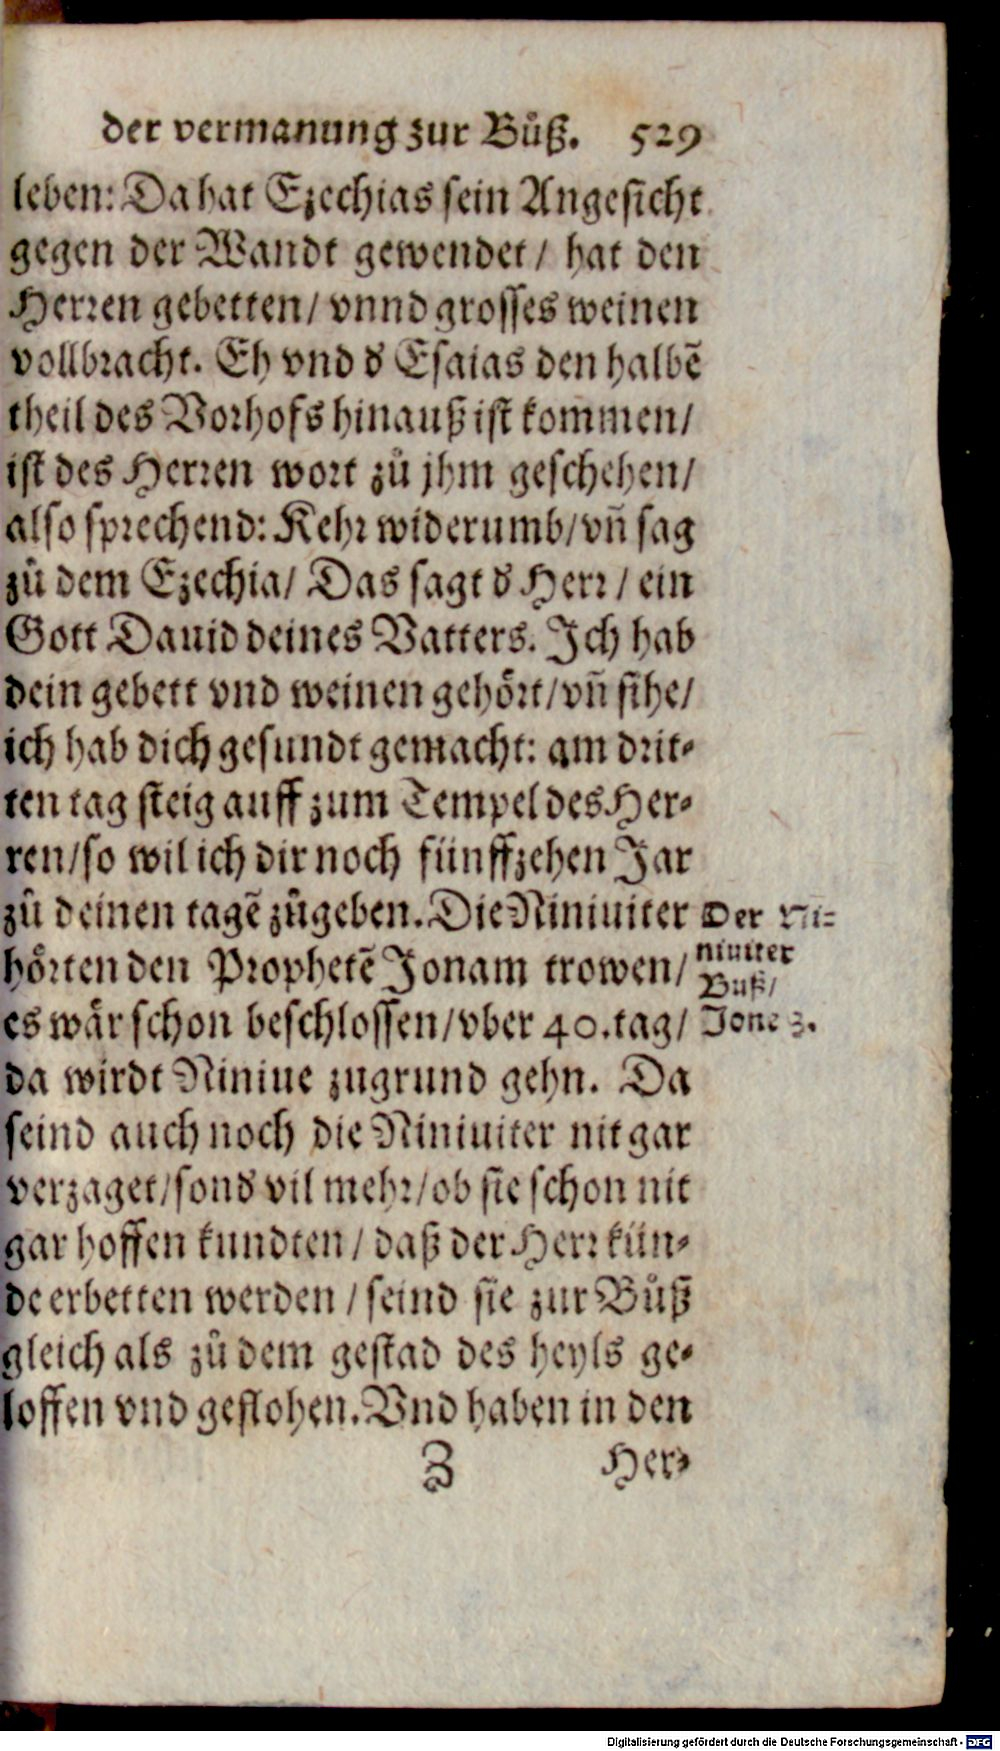 der vermanung zur Bůß. 529
leben: Da hat Ezechias sein Angesicht
gegen der Wandt gewendet / hat den
Herren gebetten / vnnd grosses weinen
vollbracht. Eh vnd d̕ Esaias den halbē
theil des Vorhofs hinauß ist kommen /
ist des Herren wort zů jhm geschehen /
also sprechend: Kehr widerumb / vñ sag
zů dem Ezechia / Das sagt d̕ Herr / ein
Gott Dauid deines Vatters. Ich hab
dein gebett vnd weinen gehört / vñ sihe /
ich hab dich gesundt gemacht: am drit⸗
ten tag steig auff zum Tempel des Her⸗
ren / so wil ich dir noch fünffzehen Jar
zů deinen tagē zůgeben. Die Niniuiter
hörten den Prophetē Jonam trowen /
es wär schon beschlossen / vber 40. tag /
da wirdt Niniue zugrund gehn. Da
seind auch noch die Niniuiter nit gar
verzaget / sond̕ vil mehr / ob sie schon nit
gar hoffen kundten / daß der Herr kün⸗
de erbetten werden / seind sie zur Bůß
gleich als zů dem gestad des heyls ge⸗
loffen vnd geflohen. Vnd haben in den
Z Her⸗
Der Ni⸗
niuiter
Buß /
Jone 3.
Digitalisierung gefördert durch die Deutsche Forschungsgemeinschaft - DFG